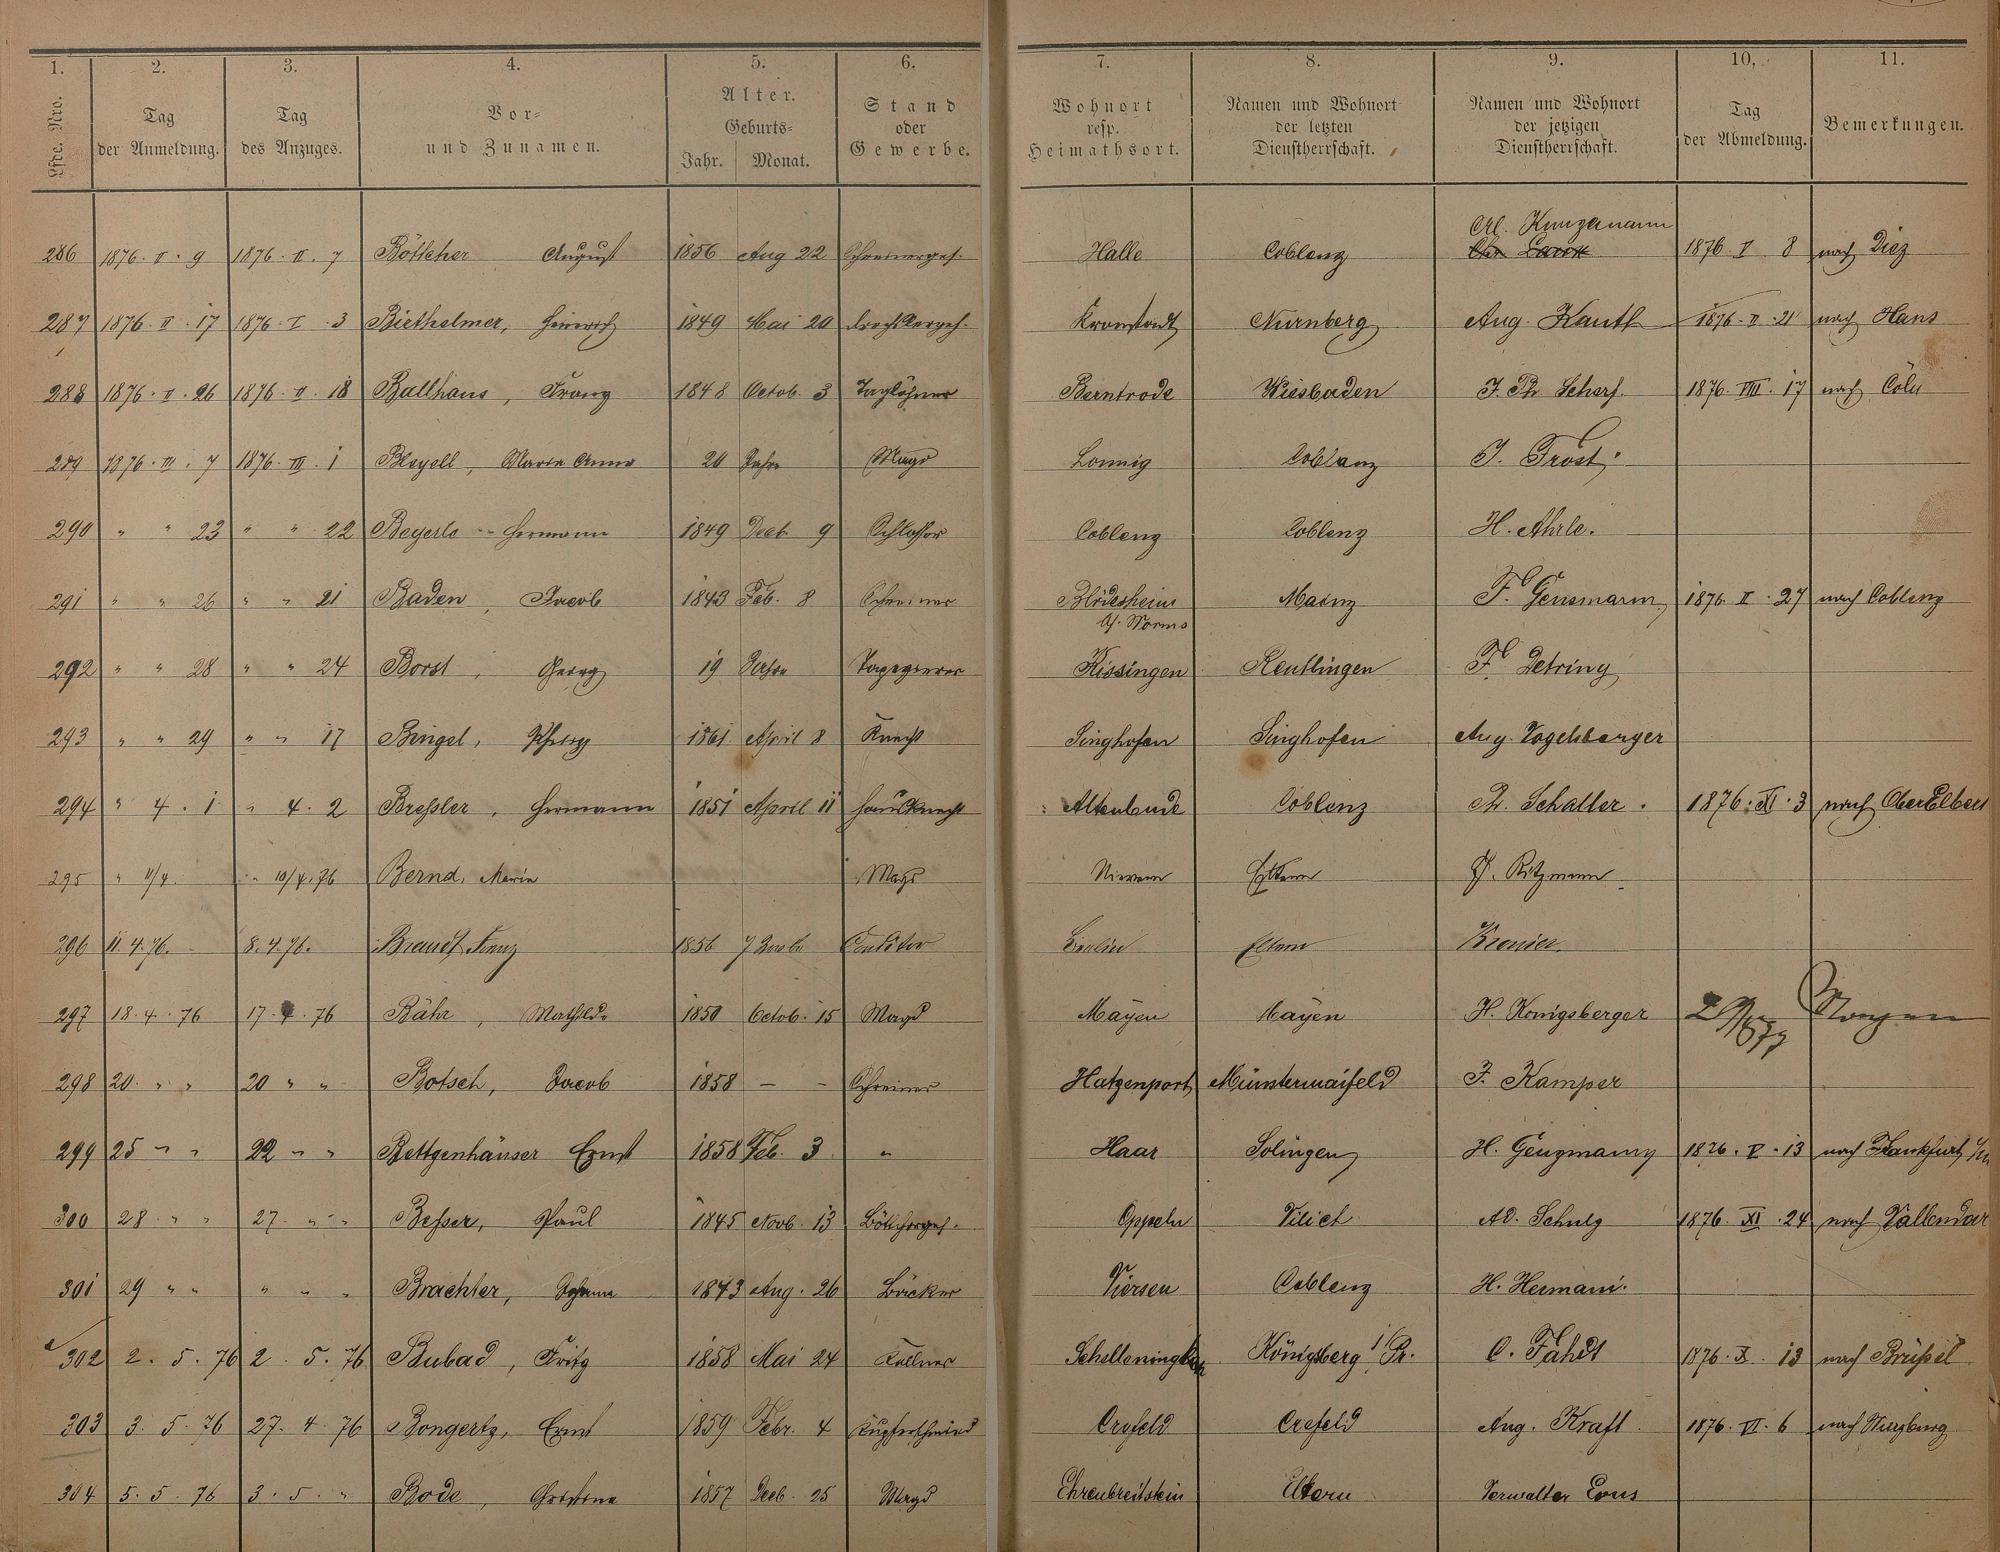 1. 2. 3. 4. 5. 6. 7. 8. 9. 10. 11.
Lfde. Nro. Tag der Anmeldung. Tag des Anzuges. Vor- und Zunamen. Alter. Geburts- Jahr. Monat. Stand oder Gewerbe. Wohnort resp. Heimathsort. Namen und Wohnort der letzten Dienstherrschaft. Namen und Wohnort der jetzigen Dienstherrschaft. Tag der Abmeldung. Bemerkungen.
286 1876. II. 9 1876. II. 7 Böttcher August 1856 Aug 22 Schreinerges. Halle Coblenz Kunzemann 1876. V 8 nach Diez
287 1876. II. 17 1876. I. 3 Birthelmer, Heinrich 1849 Mai 20 Kronstadt Nürnberg Aug. Kauth 1876. II. 21 nach Haus
288 1876. II. 26 1876. II. 18 Ballhaus, Franz 1848 Octob. 3 Taglöhner Berntrode Wiesbaden J. Ph. Scherf. 1876. VIII. 17 nach Cöln
289 1876. III. 7 1876. III. 1 Bleysll, Maria Anna 20 Jahre Magd Lonnig Coblenz J. Trost.
290 " " 23 " " 22 Beyerle Hermann 1849 Decb. 9 Schlosser Coblenz Coblenz H. Ahrle.
291 " " 26 " " 21 Baden, Jacob 1843 Feb. 8 Schreiner Blödesheim Mainz F. Gensmann, 1876. II. 27 nach Coblenz
Worms
292 " " 28 " " 24 Borst, Georg 19 Jahre Tapezierer Kissingen Reutlingen F. Detring
293 " " 29 " " 17 Bingel, Philipp 1861 April 8 Knecht Singhofen Singhofen Aug. Vogelsberger
294 " 4. 1 " 4. 2 Breßler, Hermann 1851 April 11 Hausknecht Altenbude Coblenz Ph. Schaller. 1876. XI. 3 nach OberElbert
295 " 11/4. " 10/4. 76 Bernd, Maria Magd Nievern Eltern Ritzmann
296 11. 4. 76. 8. 4. 76. Brandt Franz 1856 7 Conditor Berlin Eltern
297 18. 4. 76 17. 4. 76 Bähr, Mathilde 1850 Octob. 15 Magd Mayen Mayen H. Königsberger Mayen
298 20. " " 20 " " Botsch, Jacob 1858 – – Schreiner Hatzenport Münstermaifeld F. Kamper
299 25 " " 22 " " Bettgenhäuser Ernst 1858 Feb. 3 " Haar Solingen H. Genzmann 1876. V. 13 nach Frankfurt
300 28 " " 27 " " Beßer, Paul 1845 Novb. 13 Böttcherges. Oppeln Vilich Ad. Schulz 1876. XI. 24 nach Vallendar
301 29 " " " " " Brachter, Johann 1843 Aug. 26 Bäcker Viersen Coblenz H. Hermani.
302 2. 5. 76 2. 5. 76 Bubad, Fritz 1858 Mai 24 Kellner Königsberg i/Pr. C. Fahdt 1876. X. 13 nach Brüßel
303 3. 5. 76 27. 4. 76 Bongertz, Ernst 1859 Febr. 4 Kupferschmied Crefeld Crefeld Aug. Kraft. 1876. VI. 6 nach Würzburg
304 5. 5. 76 3. 5. " Bode, Christina 1857 Decb. 25 Magd Ehrenbreitstein Eltern Verwalter Erns